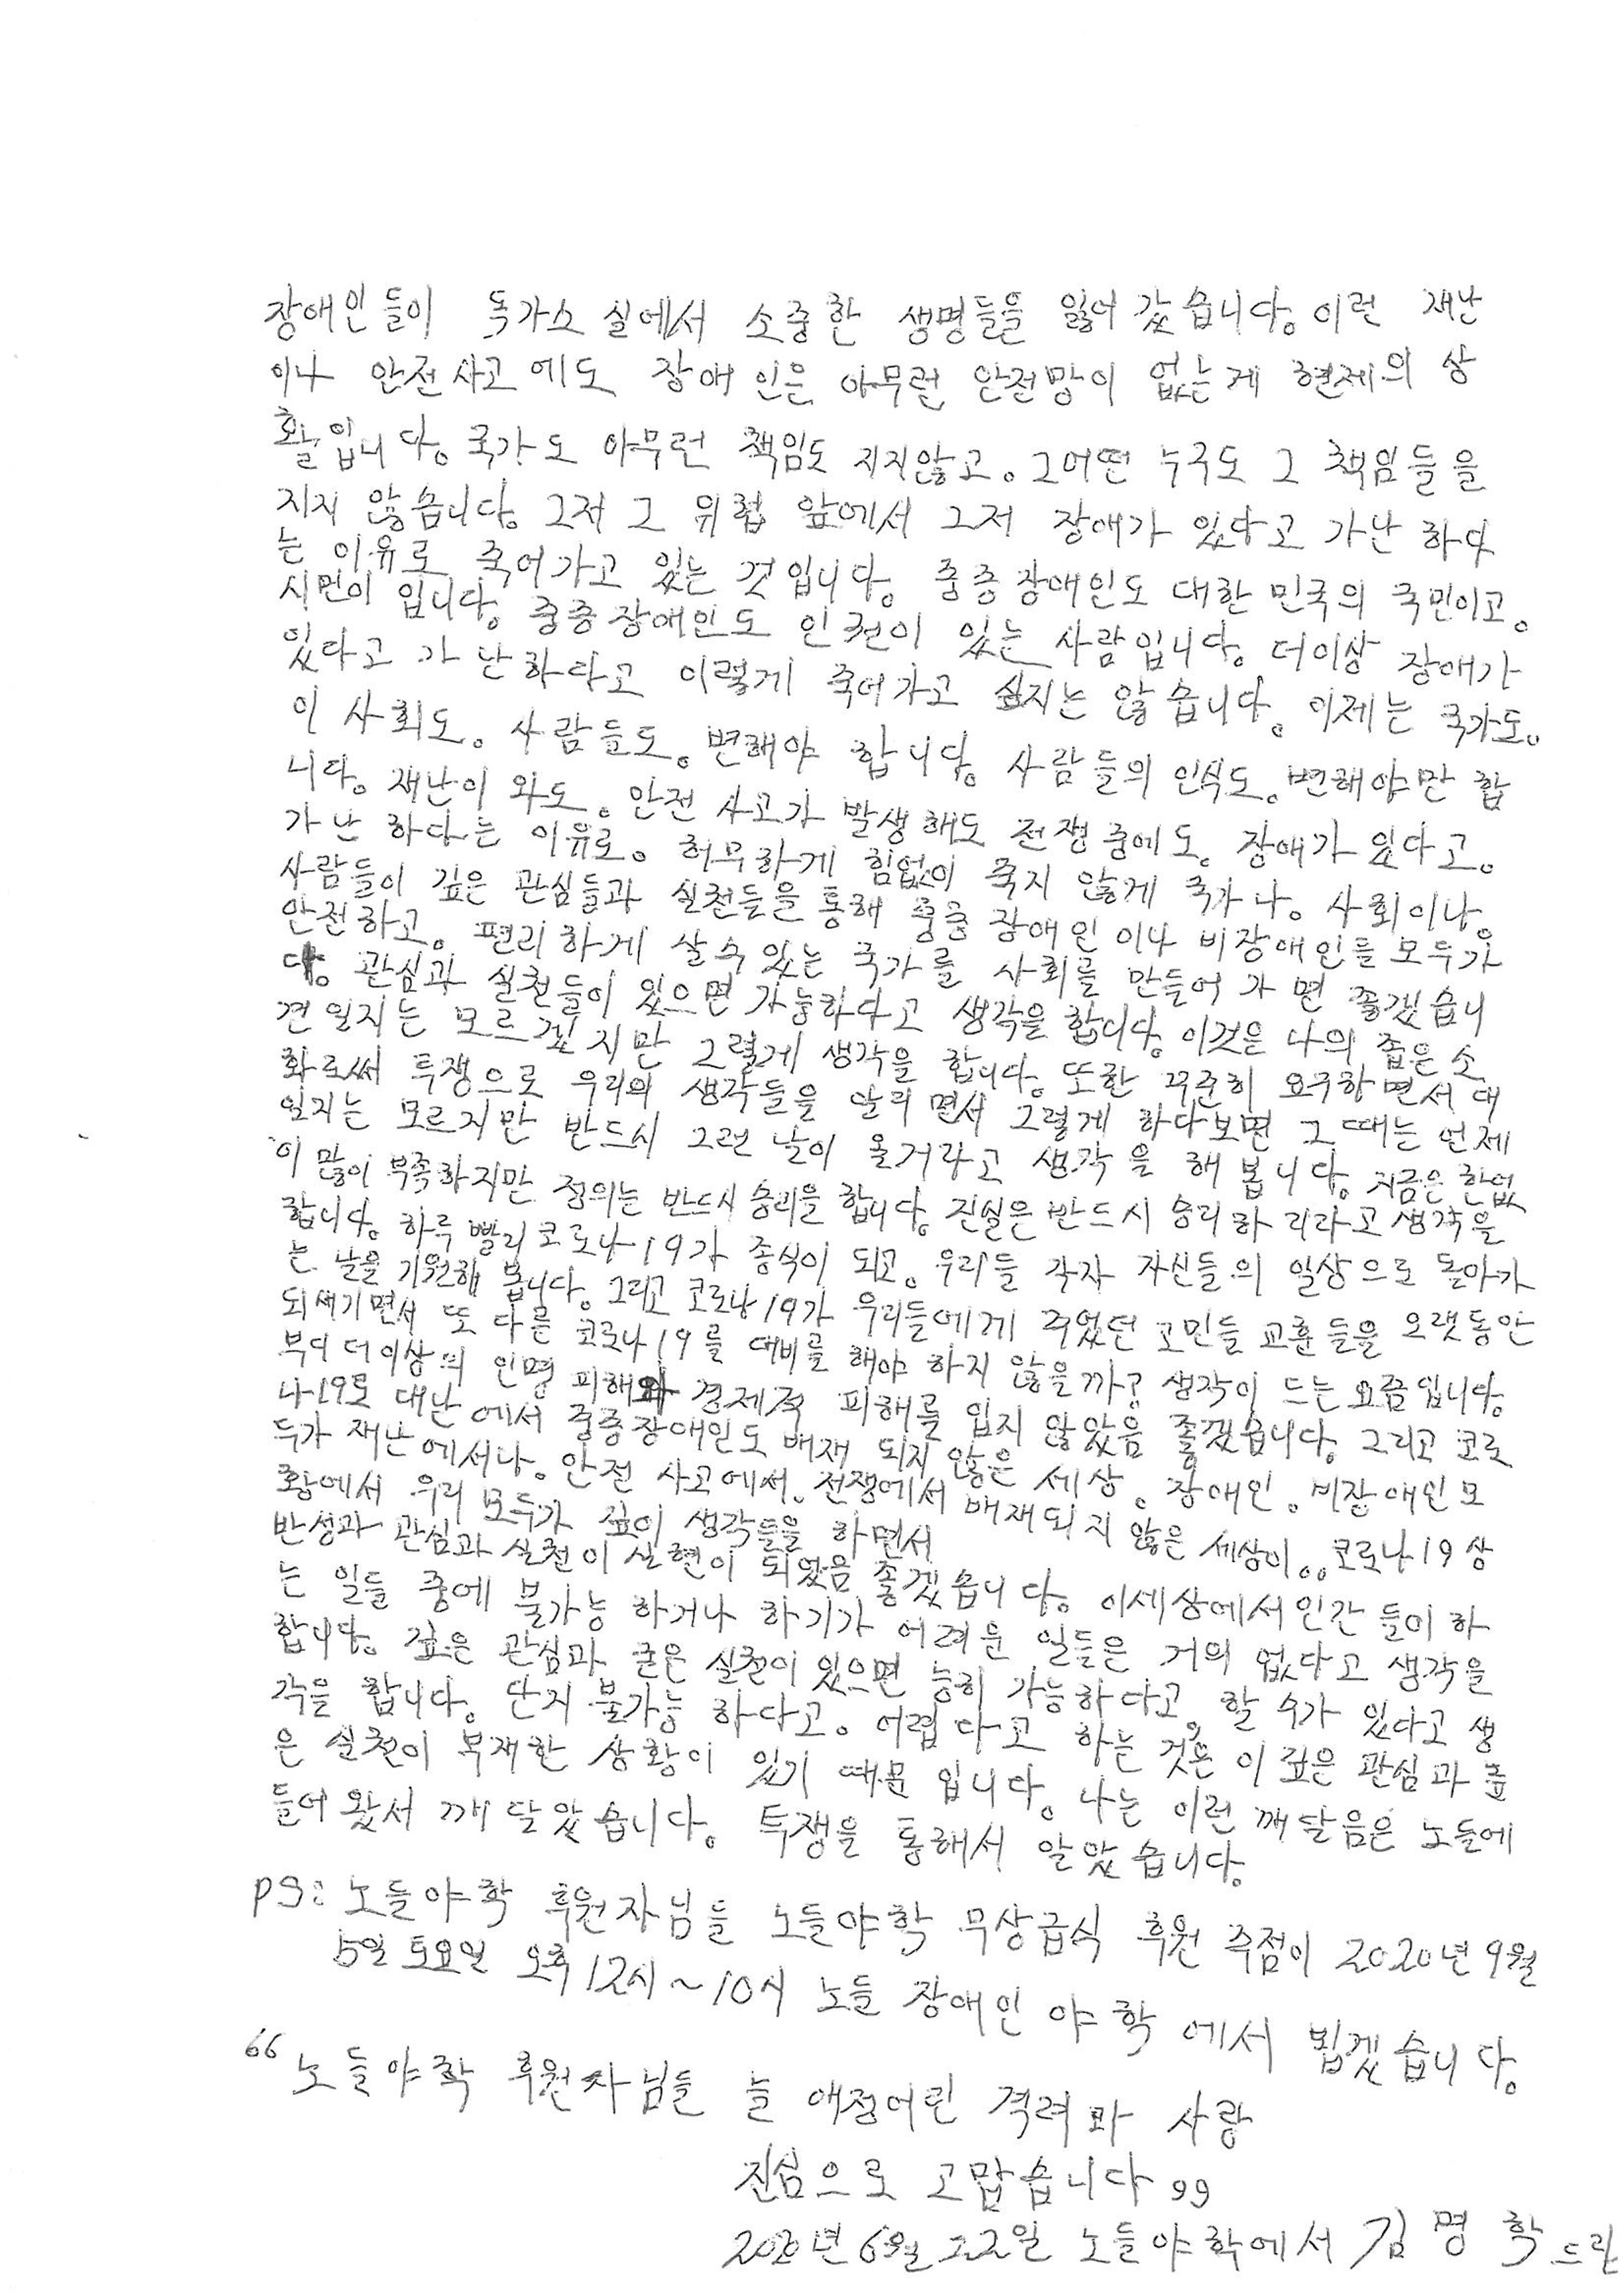 장애인들이 독가스 실에서 소중한 생명들을 잃어 갔습니다. 이런 재난
이나 안전사고 에도 장애 인은 아무런 안전망이 없는게 현제의 상
홯입니다. 국가 도 아무런 책임도 지지않고. 그어떤 누구도 그 책임들을
지지 않습니다. 그저 그 위험 앞에서 그저 장애가 있다고 가난 하다
는 이유로 죽어가고 있는 것입니다. 중증장애인도 대한 민국의 국민이고.
시민이 입니다. 중증장애인도 인권이 있는 사람입니다. 더이상 장애가
있다고 가난하다고 이렇게 죽어가고 싶지는 않습니다. 이제는 국가도.
이 사회도. 사람들도. 변해야 합니다. 사람들의 인식도. 변해야만 합
니다. 재난이 와도. 안전 사고가 발생해도 전쟁중에도. 장애가 있다고.
가난 하다는 이유로. 허무하게 힘없이 죽지 않게 국가나. 사회이나.
사람들이 깊은 관심들과 실천들을 통해 중증 장애인 이나 비장애인들 모두가
안전하고. 편리하게 살수있는 국가를 사회를 만들어 가면 좋겠습니
다. 관심과 실천들이 있으면 가능하다고 생각을 합니다. 이것은 나의 좁은 소
견 일지는 모르겠지만 그렇게 생각을 합니다. 또한 꾸준히 요구하면서 대
화로써 투쟁으로 우리의 생각들을 알리면서 그렇게 하다보면 그 때는 언제
일지는 모르지만 반드시 그런 날이 올거라고 생각을 해 봅니다. 지금은 한없
이 많이 부족하지만 정의는 반드시 승리을 합니다. 진실은 반드시 승리하리라고 생각을
합니다. 하루빨리 코로나19가 종식이 되고. 우리들 각자 자신들의 일상으로 돌아가
는 날을 기원해 봅니다. 그리고 코로나19가 우리들에게 주었던 고민들 교훈들을 오랫동안
되세기면서 또 다른 코로나19를 대비를 해야 하지 않을까? 생각이 드는 요즘입니다.
부디 더이상의 인명 피해와 경제적 피해를 입지 않았음 좋겠습니다. 그리고 코로
나19로 대난 에서 중증장애인도 배재 되지 않은 세상. 장애인. 비장애인모
두가 재난에서나. 안전 사고에서. 전쟁에서 배재되지 않은 세상이.. 코로나19상
황에서 우리 모두가 깊이 생각들을 하면서
반성과 관심과 실천이 실현이 되었음 좋겠습니다. 이세상에서 인간들이 하
는 일들 중에 불가능 하거나 하기가 어려운 일들은 거의 없다고 생각을
합니다. 깊은 관심과 굳은 실천이 있으면 능히 가능하다고, 할 수가 있다고 생
각을 합니다. 단지 불가능 하다고. 어렵다고 하는 것은 이 깊은 관심과
은 실천이 부재한 상황이 있기 때문 입니다. 나는 이런 깨달음은 노들에
들어 왔서 깨달았습니다. 투쟁을 통해서 알았습니다.
ps: 노들야학 후원자님들 노들야학 무상급식 후원 주점이 2020년 9월
5일 토요일 오후12시~10시 노들 장애인 야학 에서 뵙겠습니다.
“노들야학 후원자님들 늘 애정어린 격려와 사랑
진심으로 고맙습니다”
2020년 6월 22일 노들야학에서 김명학 드림